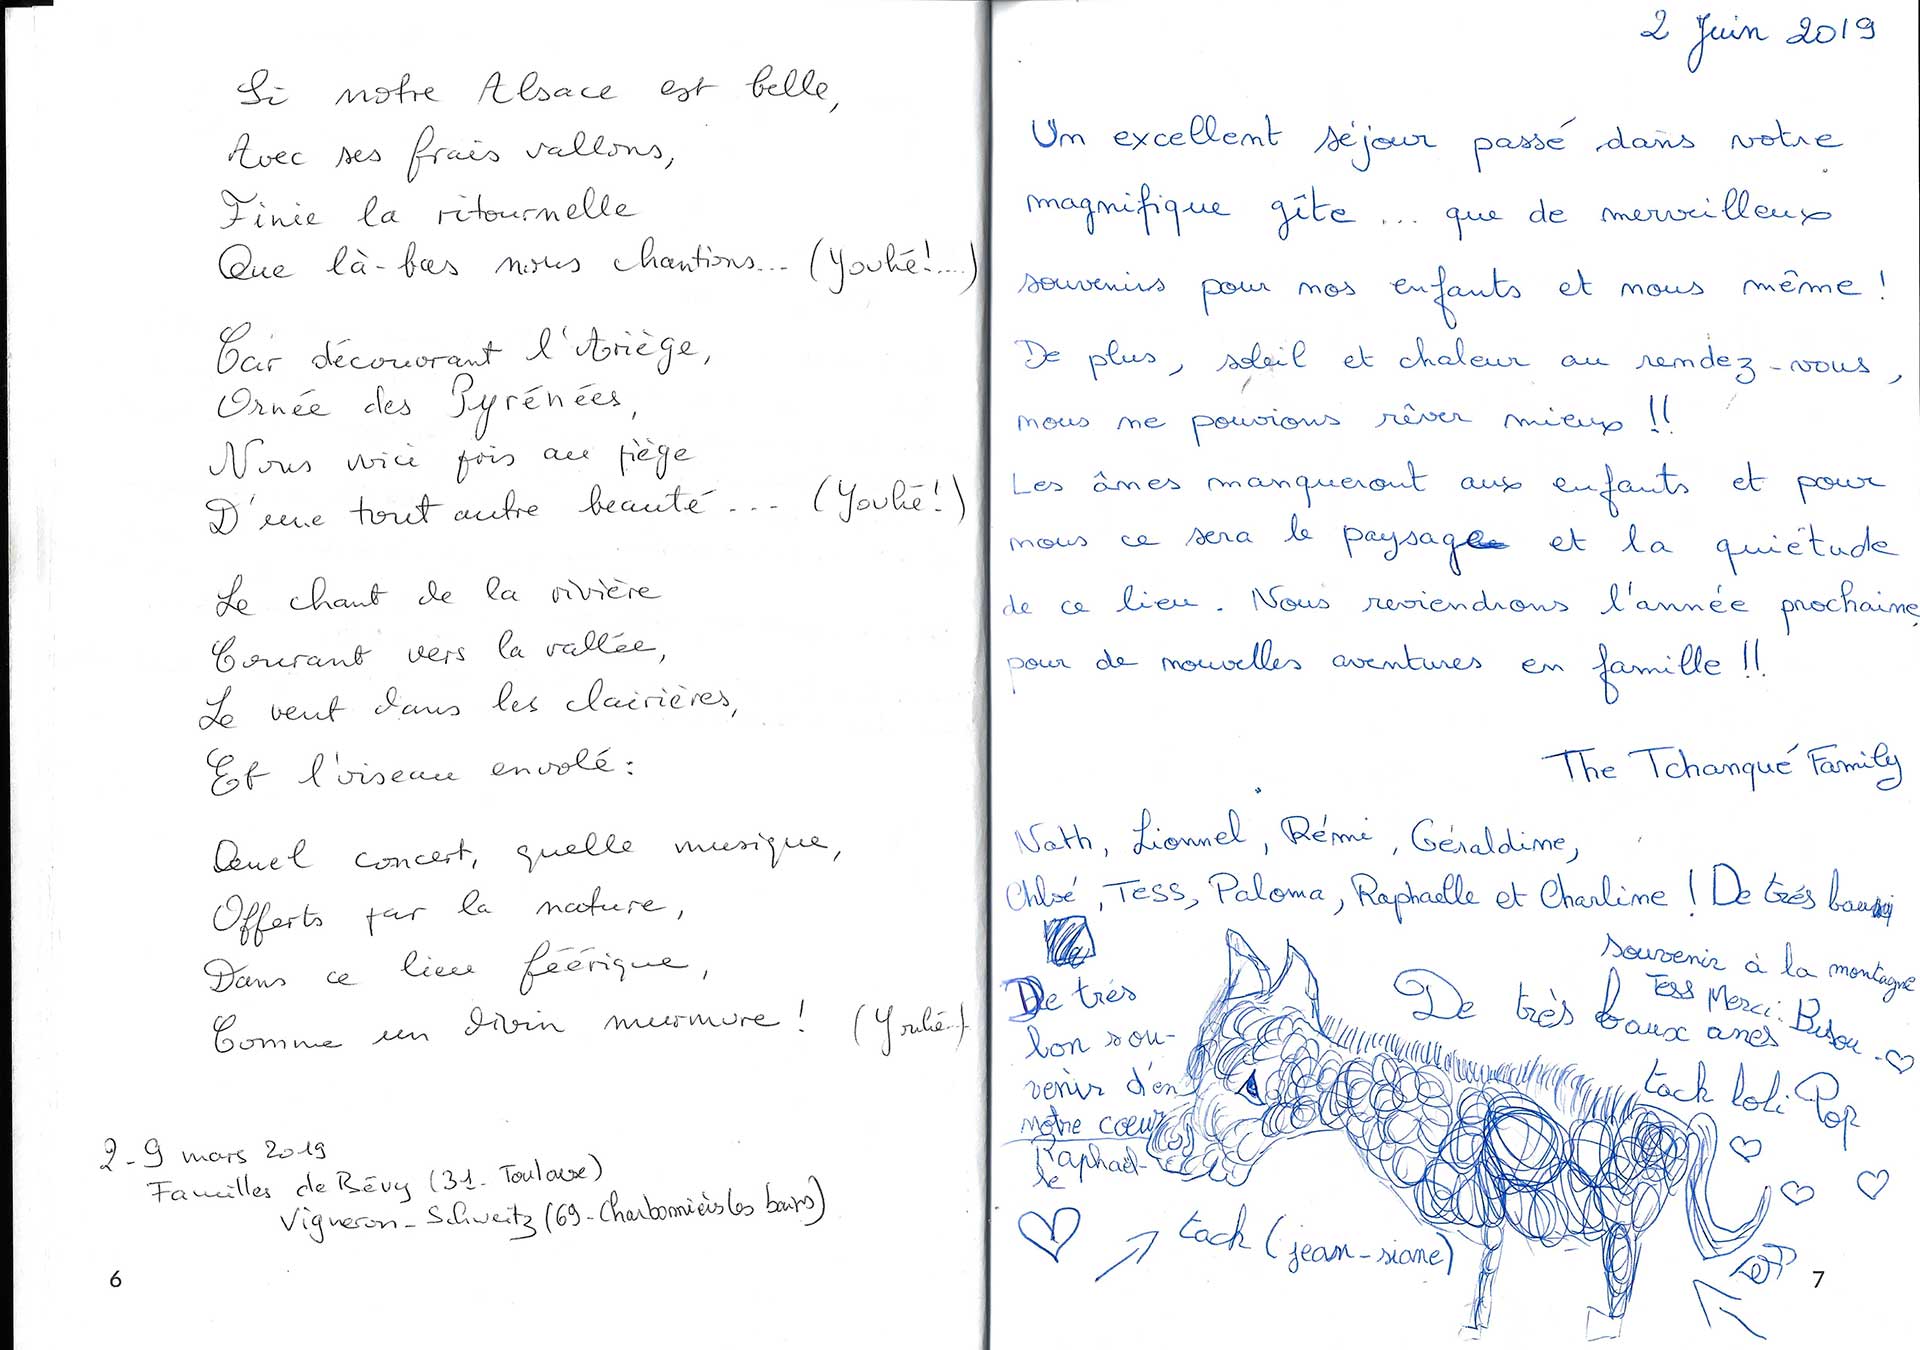 Si notre Alsace est belle,
Avec ses frais vallons,
Finie la ritournelle
Que là-bas nous chantions... (Youhé!....)
Car découvrant l'Ariège,
Ornée des Pyrénées,
Nous voici pris au piège
D'une tout autre beauté... (Youhé!)
Le chant de la rivière
Courant vers la vallée,
Le vent dans les clairières,
Et l'oiseau envolé:
Quel concert, quelle musique,
Offerts par la nature,
Dans ce lieu féérique,
Comme un divin murmure! (Youhé..)
2-9 mars 2019
Familles de Bévy (31-Toulouse)
Vigneron-Schweitz (69-Charbonnières les bains)
6
2 Juin 2019
Un excellent séjour passé dans votre
magnifique gîte... que de merveilleux
souvenirs pour nos enfants et nous même!
De plus, soleil et chaleur au rendez-vous,
nous ne pouvions rêver mieux!!
Les ânes manqueront aux enfants et pour
nous ce sera le paysage et la quiétude
de ce lieu. Nous reviendrons l'année prochaine,
pour de nouvelles aventures en famille!!
The Tchanqué Family
Nath, Lionnel, Rémi, Géraldine,
Chloé, Tess, Paloma, Raphaelle et Charline! De trés baux
souvenir à la montagne
Tess Merci. Bisou.
De trés
bon sou-
venir d'en
notre coeur
Raphael-
le
De très baux anes
tack loli Pop
tack (jean-siane)
7